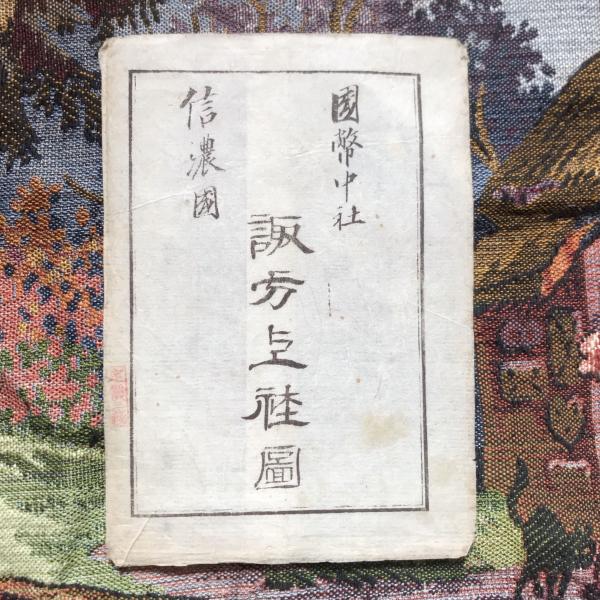 國幣中社
諏方上社圖
信濃國